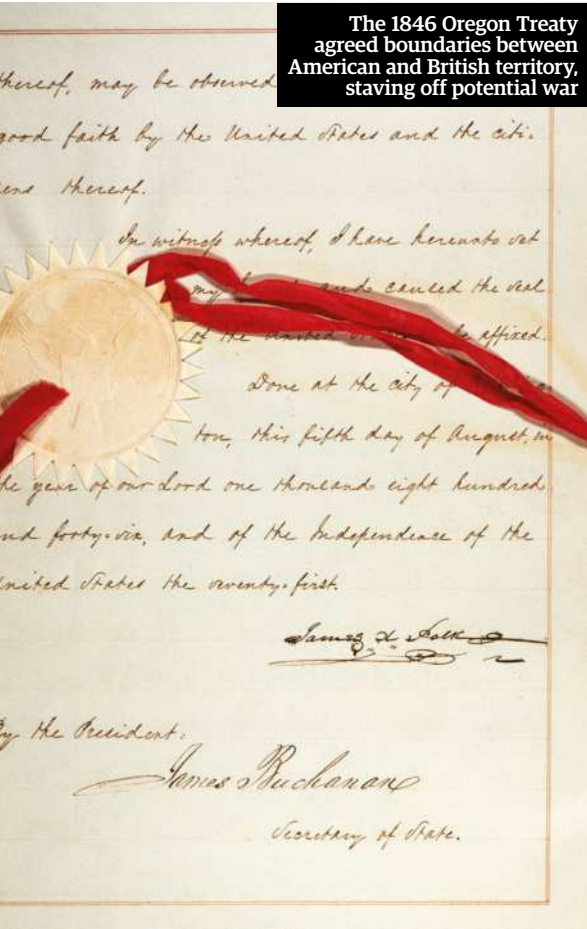 The 1846 Oregon Treaty
agreed boundaries between
American and British territory,
staving off potential war
thereof, may be observed
good faith by the United States and the citi=
ens thereof.
In witness whereof, I have hereunto set
my and caused the seal
of the United be affixed.
Done at the city of
ton, this fifth day of August, in
he year of our Lord one thousand eight hundred
nd forty-six, and of the Independence of the
United States the seventy-first.
James K Polk
By the President:
James Buchanan
Secretary of State.